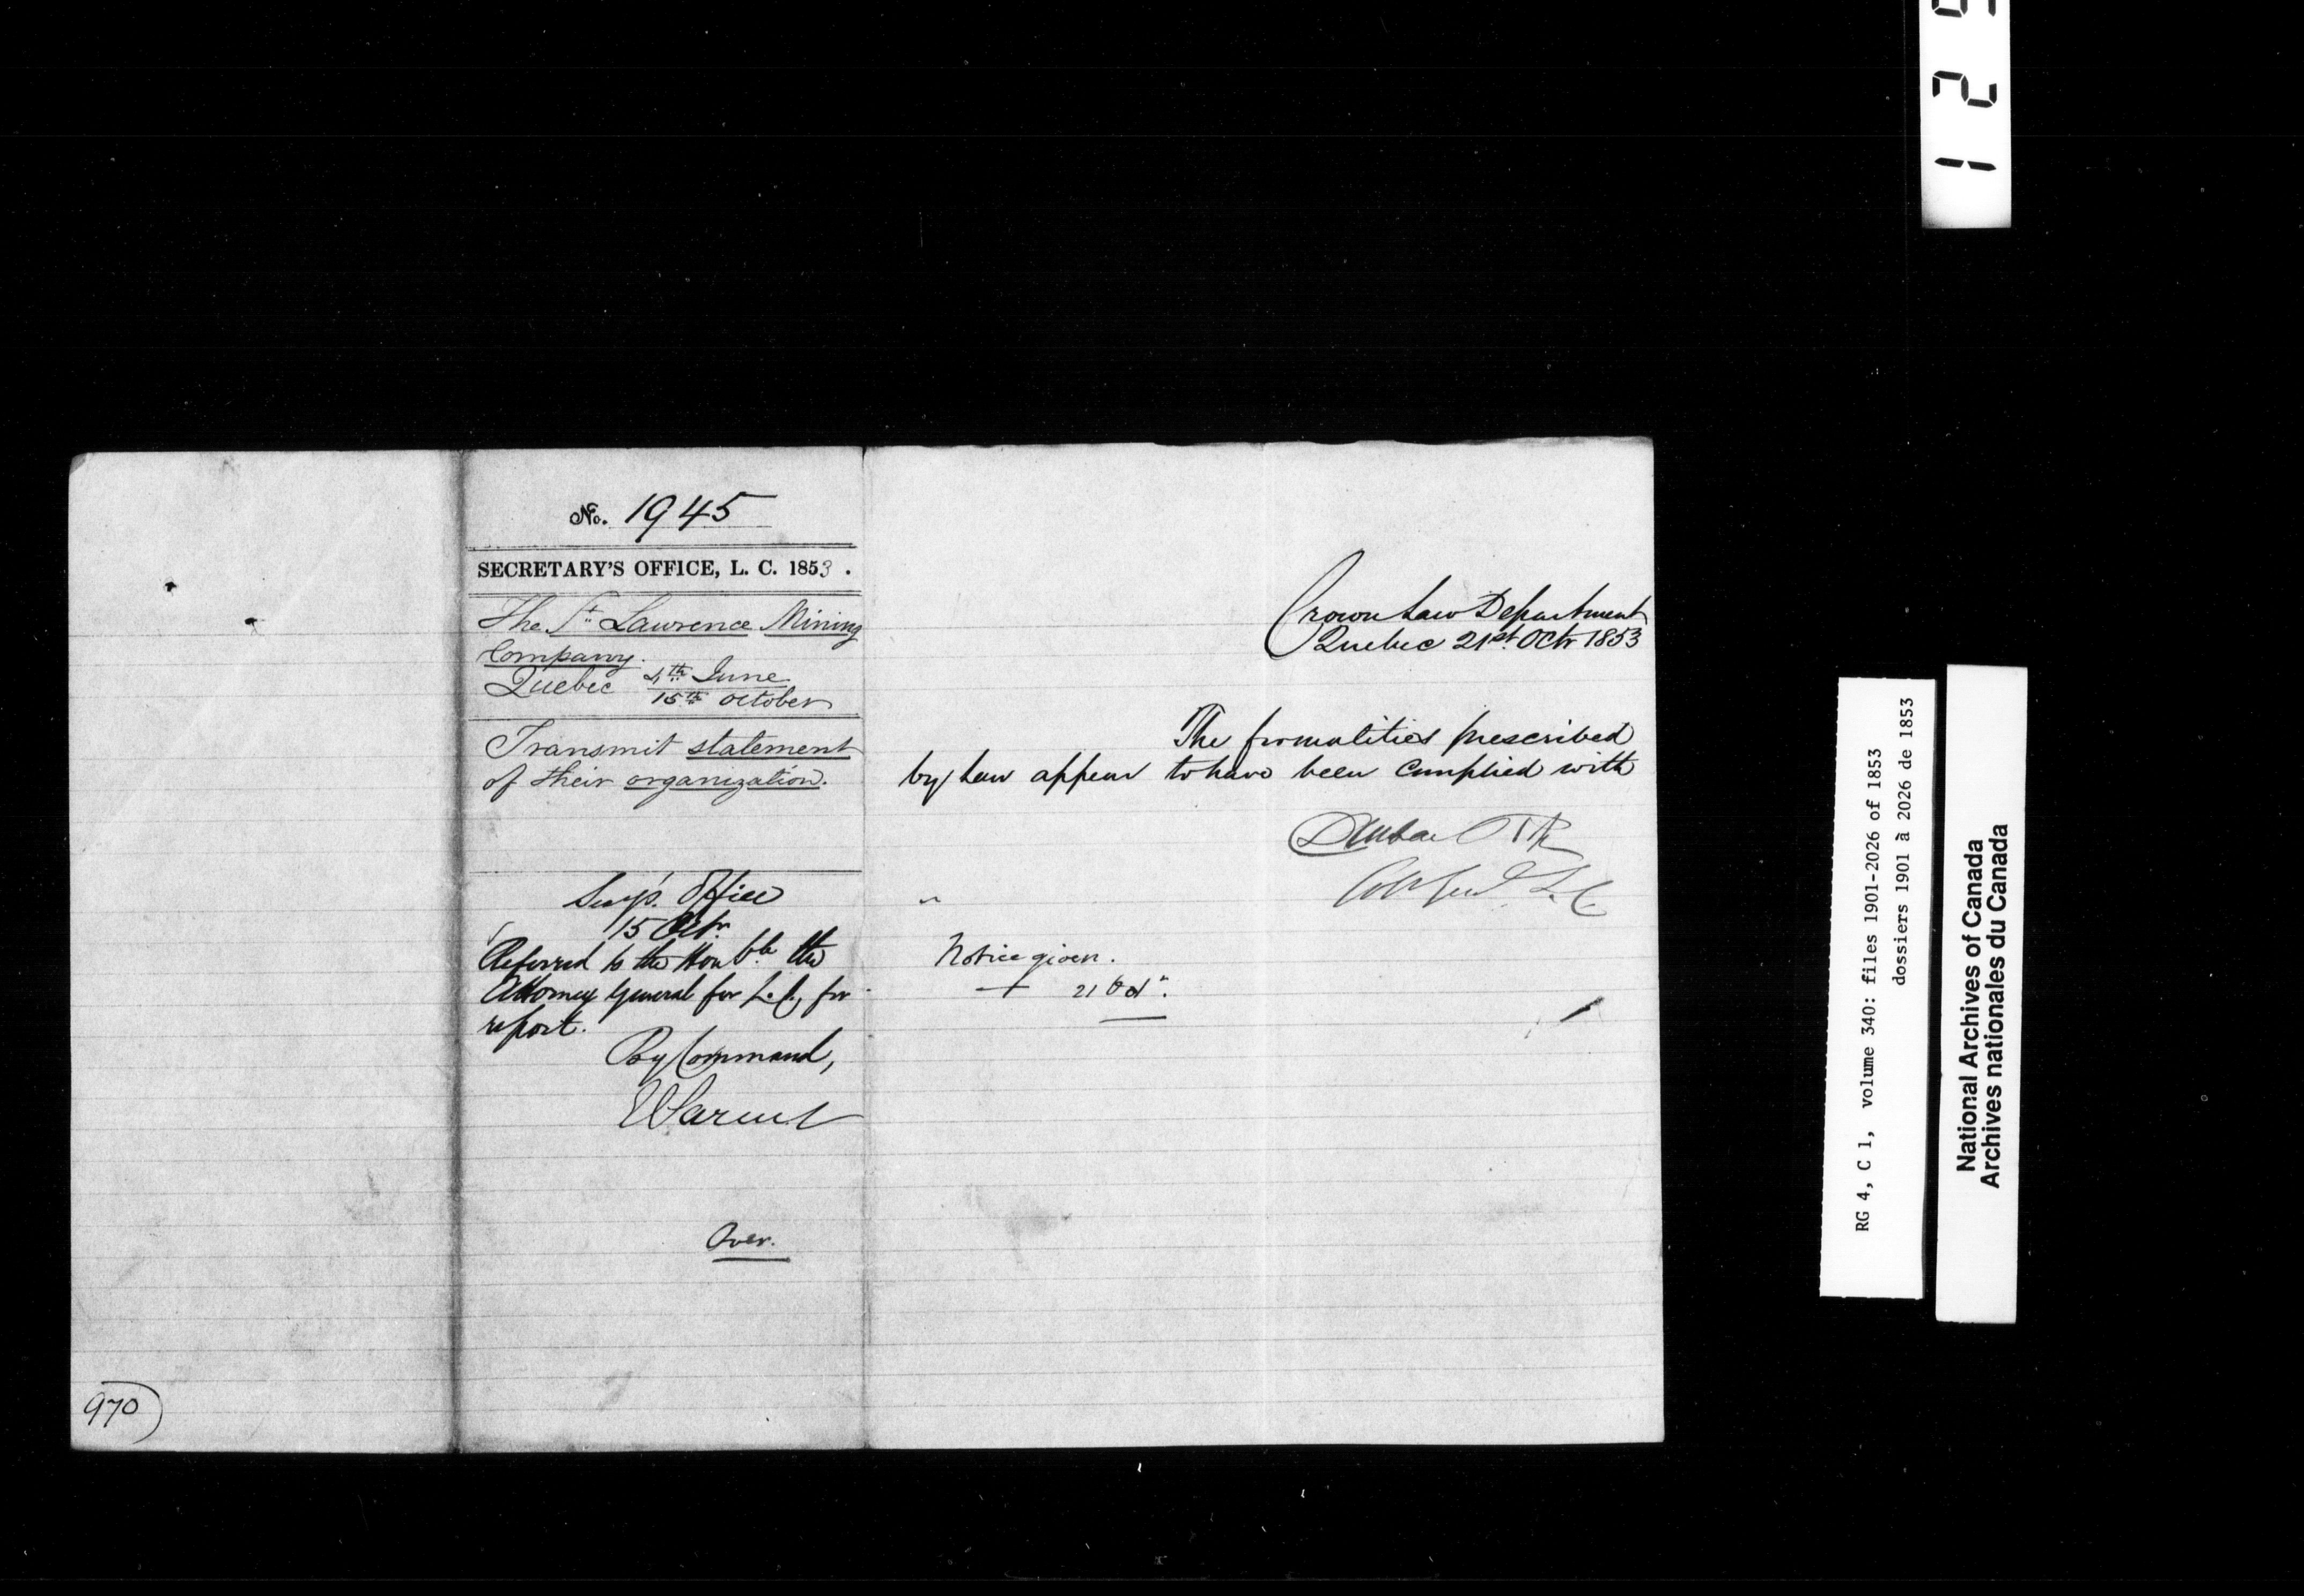 No. 1945
SECRETARY'S OFFICE, L. C. 1853.
The St Lawrence Mining
Company.
Quebec 4th June
15th October
Transmit statement
of their organization.
Secy's. Office
15 Octr
Referred to the Honble the
Attorney General for L. C, for
report.
By Command,
Over.
970
Crown Law Department
Quebec 21st. Octr 1853
The formalities prescribed
by Law appear to have been complied with
L. C.
Notice given.
21 Oct.
1 2 9
RG 4, C 1, volume 340: files 1901-2026 of 1853
dossiers 1901 à 2026 de 1853
National Archives of Canada
Archives nationales du Canada